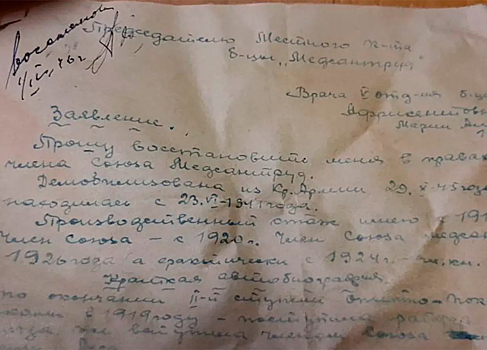 Восстановить
1/IV 46 г.
Председателю Местного К-та
б-цы "Медсантруд"
Врача V отд-ия б-цы
Марии
Заявление.
Прошу восстановить меня в правах
члена Союза Медсантруд.
Демобилизована из Кр. Армии 29.X-45 года
находилась с 23.VI-1941 года.
Производственный стаж имею с 191
Член союза – с 1920 г. Член Союза медсан
1926 года а фактически с 1924 г.
Краткая автобиография.
по окончании II-й ступени Опытно-Пок
в 1919 году – поступила
вступила членом Союза